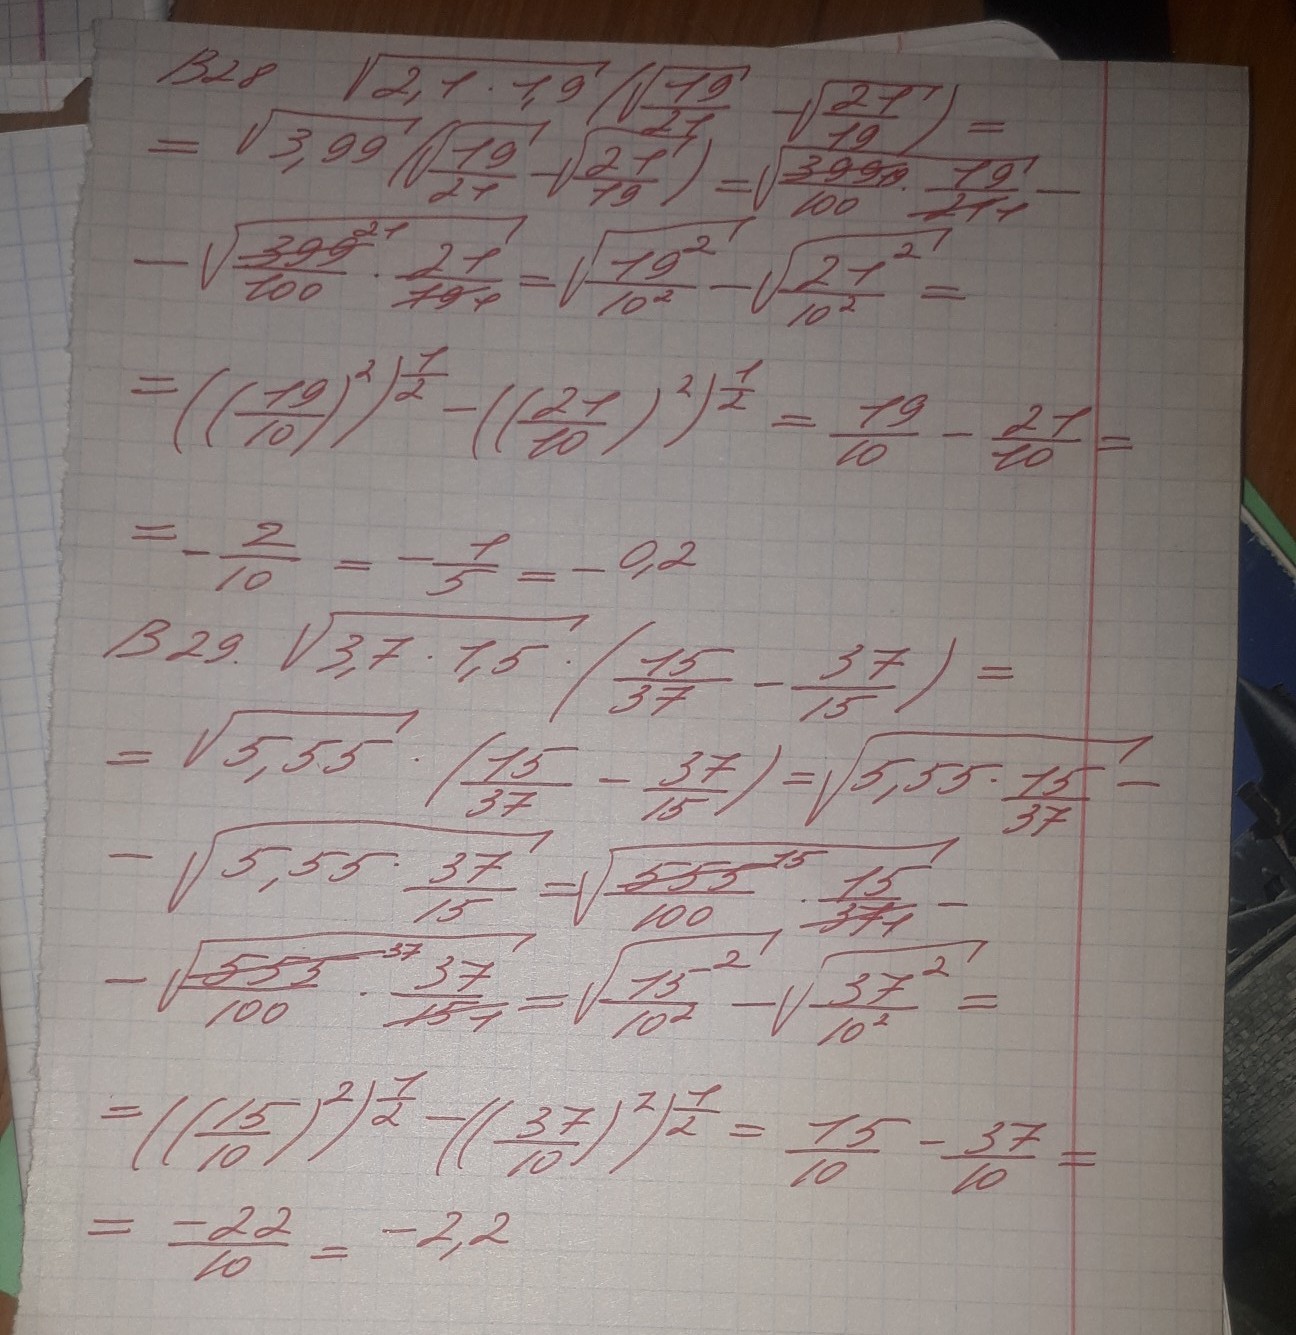 В28 √(2,1 · 1,9) (√(19/21) - √(21/19)) =
= √(3,99) (√(19/21) - √(21/19)) = √(399 19/100 · 19/21 1) -
- √(399 21/100 · 21/19 1) = √(19²/10²) - √(21²/10²) =
= ((19/10)²)^(1/2) - ((21/10)²)^(1/2) = 19/10 - 21/10 =
= - 2/10 = - 1/5 = - 0,2
В29. √(3,7 · 1,5) · (15/37 - 37/15) =
= √(5,55) · (15/37 - 37/15) = √(5,55 · 15/37) -
- √(5,55 · 37/15) = √(555 15/100 · 15/37 1) -
- √(555 37/100 · 37/15 1) = √(15²/10²) - √(37²/10²) =
= ((15/10)²)^(1/2) - ((37/10)²)^(1/2) = 15/10 - 37/10 =
= -22/10 = -2,2